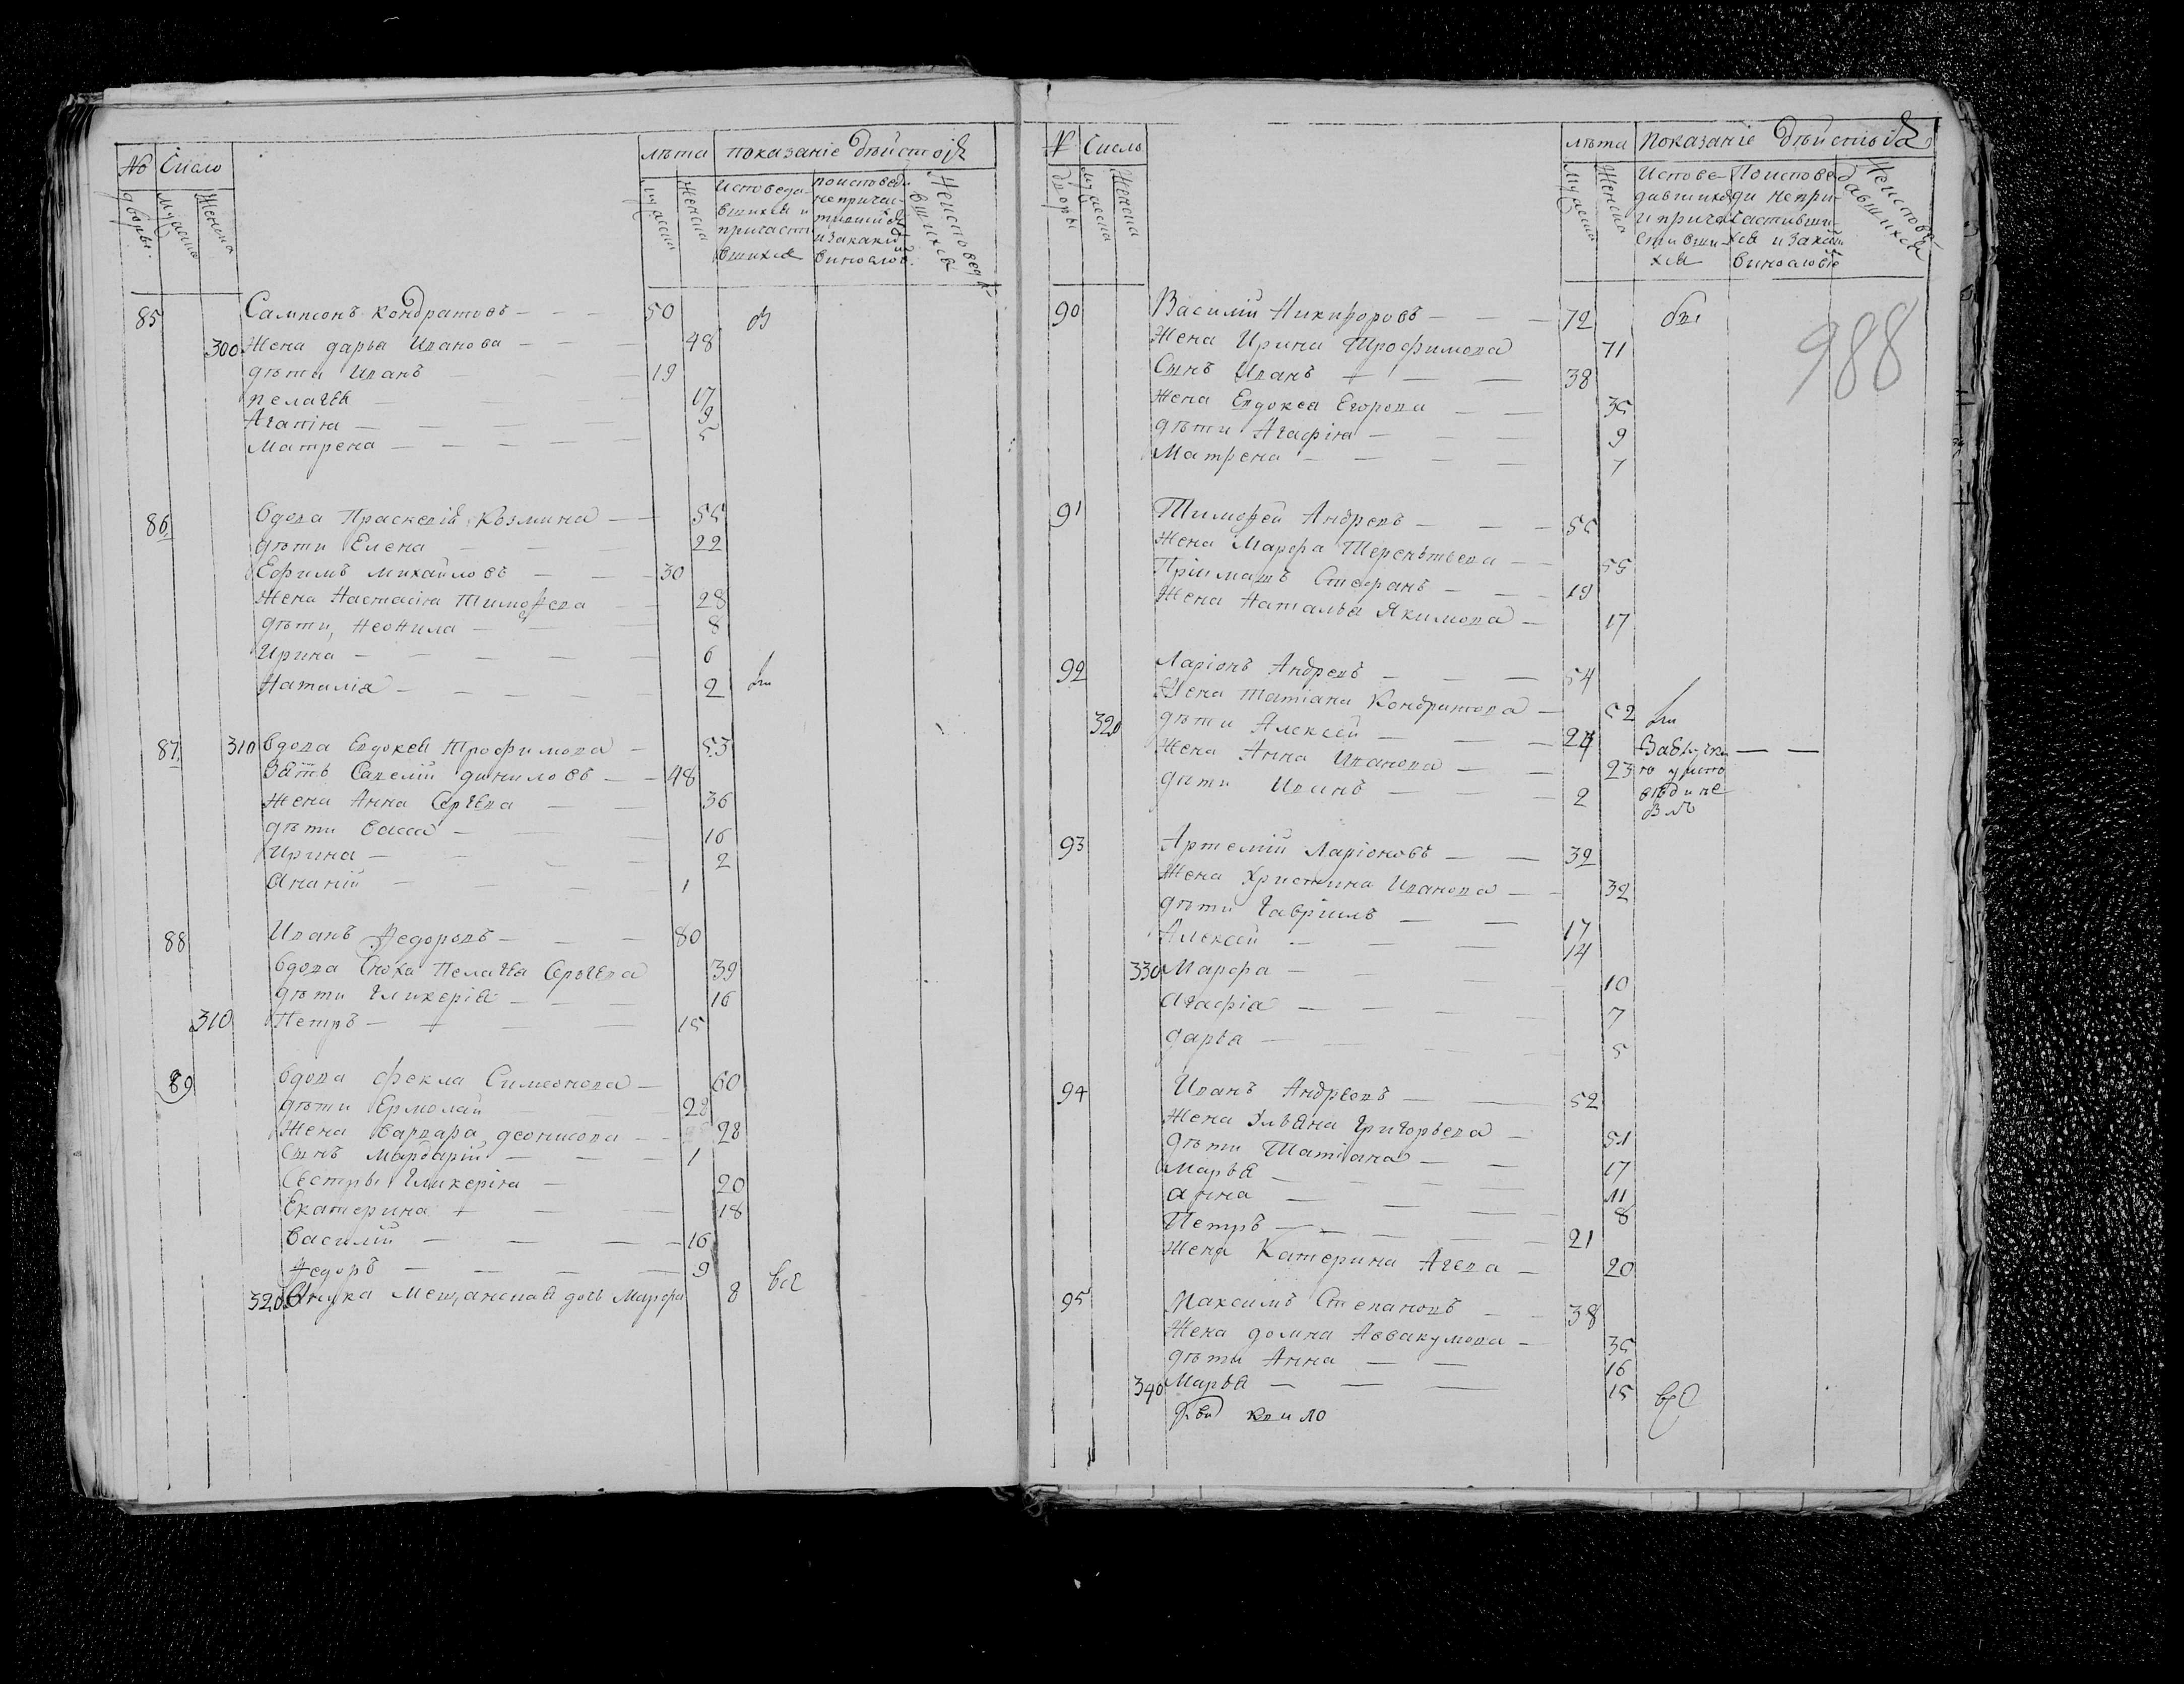 № Число лѣта показание дѣйствія
дворы. мужеска женска мужеска женска
исповеда- вшихся и причасти вшихся
поисповед. непричас- тившихся и закакой виной
неисповеда вшихся
85 Сампсонъ Кондратовъ 50
300 Жена дарья Иванова 48
дѣти Иванъ 19
Пелагея 17
Агапиа 9
Матрена 5
86 Вдова Праскевія Козмина 55
дѣти Елена 22
Ефимъ Михайловъ 30
Жена Настасиа Тимофеева 28
дѣти, Неонила 8
Ирина 6
Наталіа 2
87 310 Вдова Евдокея Трофимова 53
Зять Савелій даниловъ 48
Жена Анна Сергева 36
дѣти Васса 16
Ирина 2
Ананій 1
88 Иванъ Федоровъ 80
Вдова Сноха Пелагея Сергева 39
дѣти Гликеріа 16
310 Петръ 15
89 Вдова Фекла Симеонова 60
дѣти Ермолай 28
Жена Варвара деонисова 28
Сынъ Мардарій 1
Сестры Гликериа 20
Екатерина 18
Василій 16
Федоръ 9
320 Внука Мещанская дочь Марфа 8 все
№ Число лѣта показаніе дѣйствіа
дворы мужеска женска мужеска женска
Испове- давшихся и прича- стивши- хся
Поисповеди непри- частивши хся и закакой виной
Неисповедавшихся
988
90 Василій Никифоровъ 72
Жена Ирина Трофимова 71
Сынъ Иванъ 38
Жена Евдокеа Егорова 35
дѣти Агафиа 9
Матрена 7
91 Тимофей Андреевъ 55
Жена Марфа Терентьева 55
Пріимашъ Стефанъ 19
Жена Наталья Якимова 17
92 Ларіонъ Андревъ 54
Жена Татіана Кондратова 52
320 дѣти Алексей 24
Жена Анна Иванова 23
дѣти Иванъ 2
93 Артемій Ларіоновъ 32
Жена Христина Иванова 32
дѣти Гавріилъ 17
Алексей 14
330 Марфа 10
Агафіа 7
дарья 5
94 Иванъ Андреевъ 52
Жена Ульяна Григорьева 51
дѣти Татіана 17
Марья 11
анна 8
Петръ 21
Жена Катерина Агева 20
95 Максимъ Степановъ 38
Жена домна Аввакумова 35
дѣти Анна 16
340 Марья 15 все